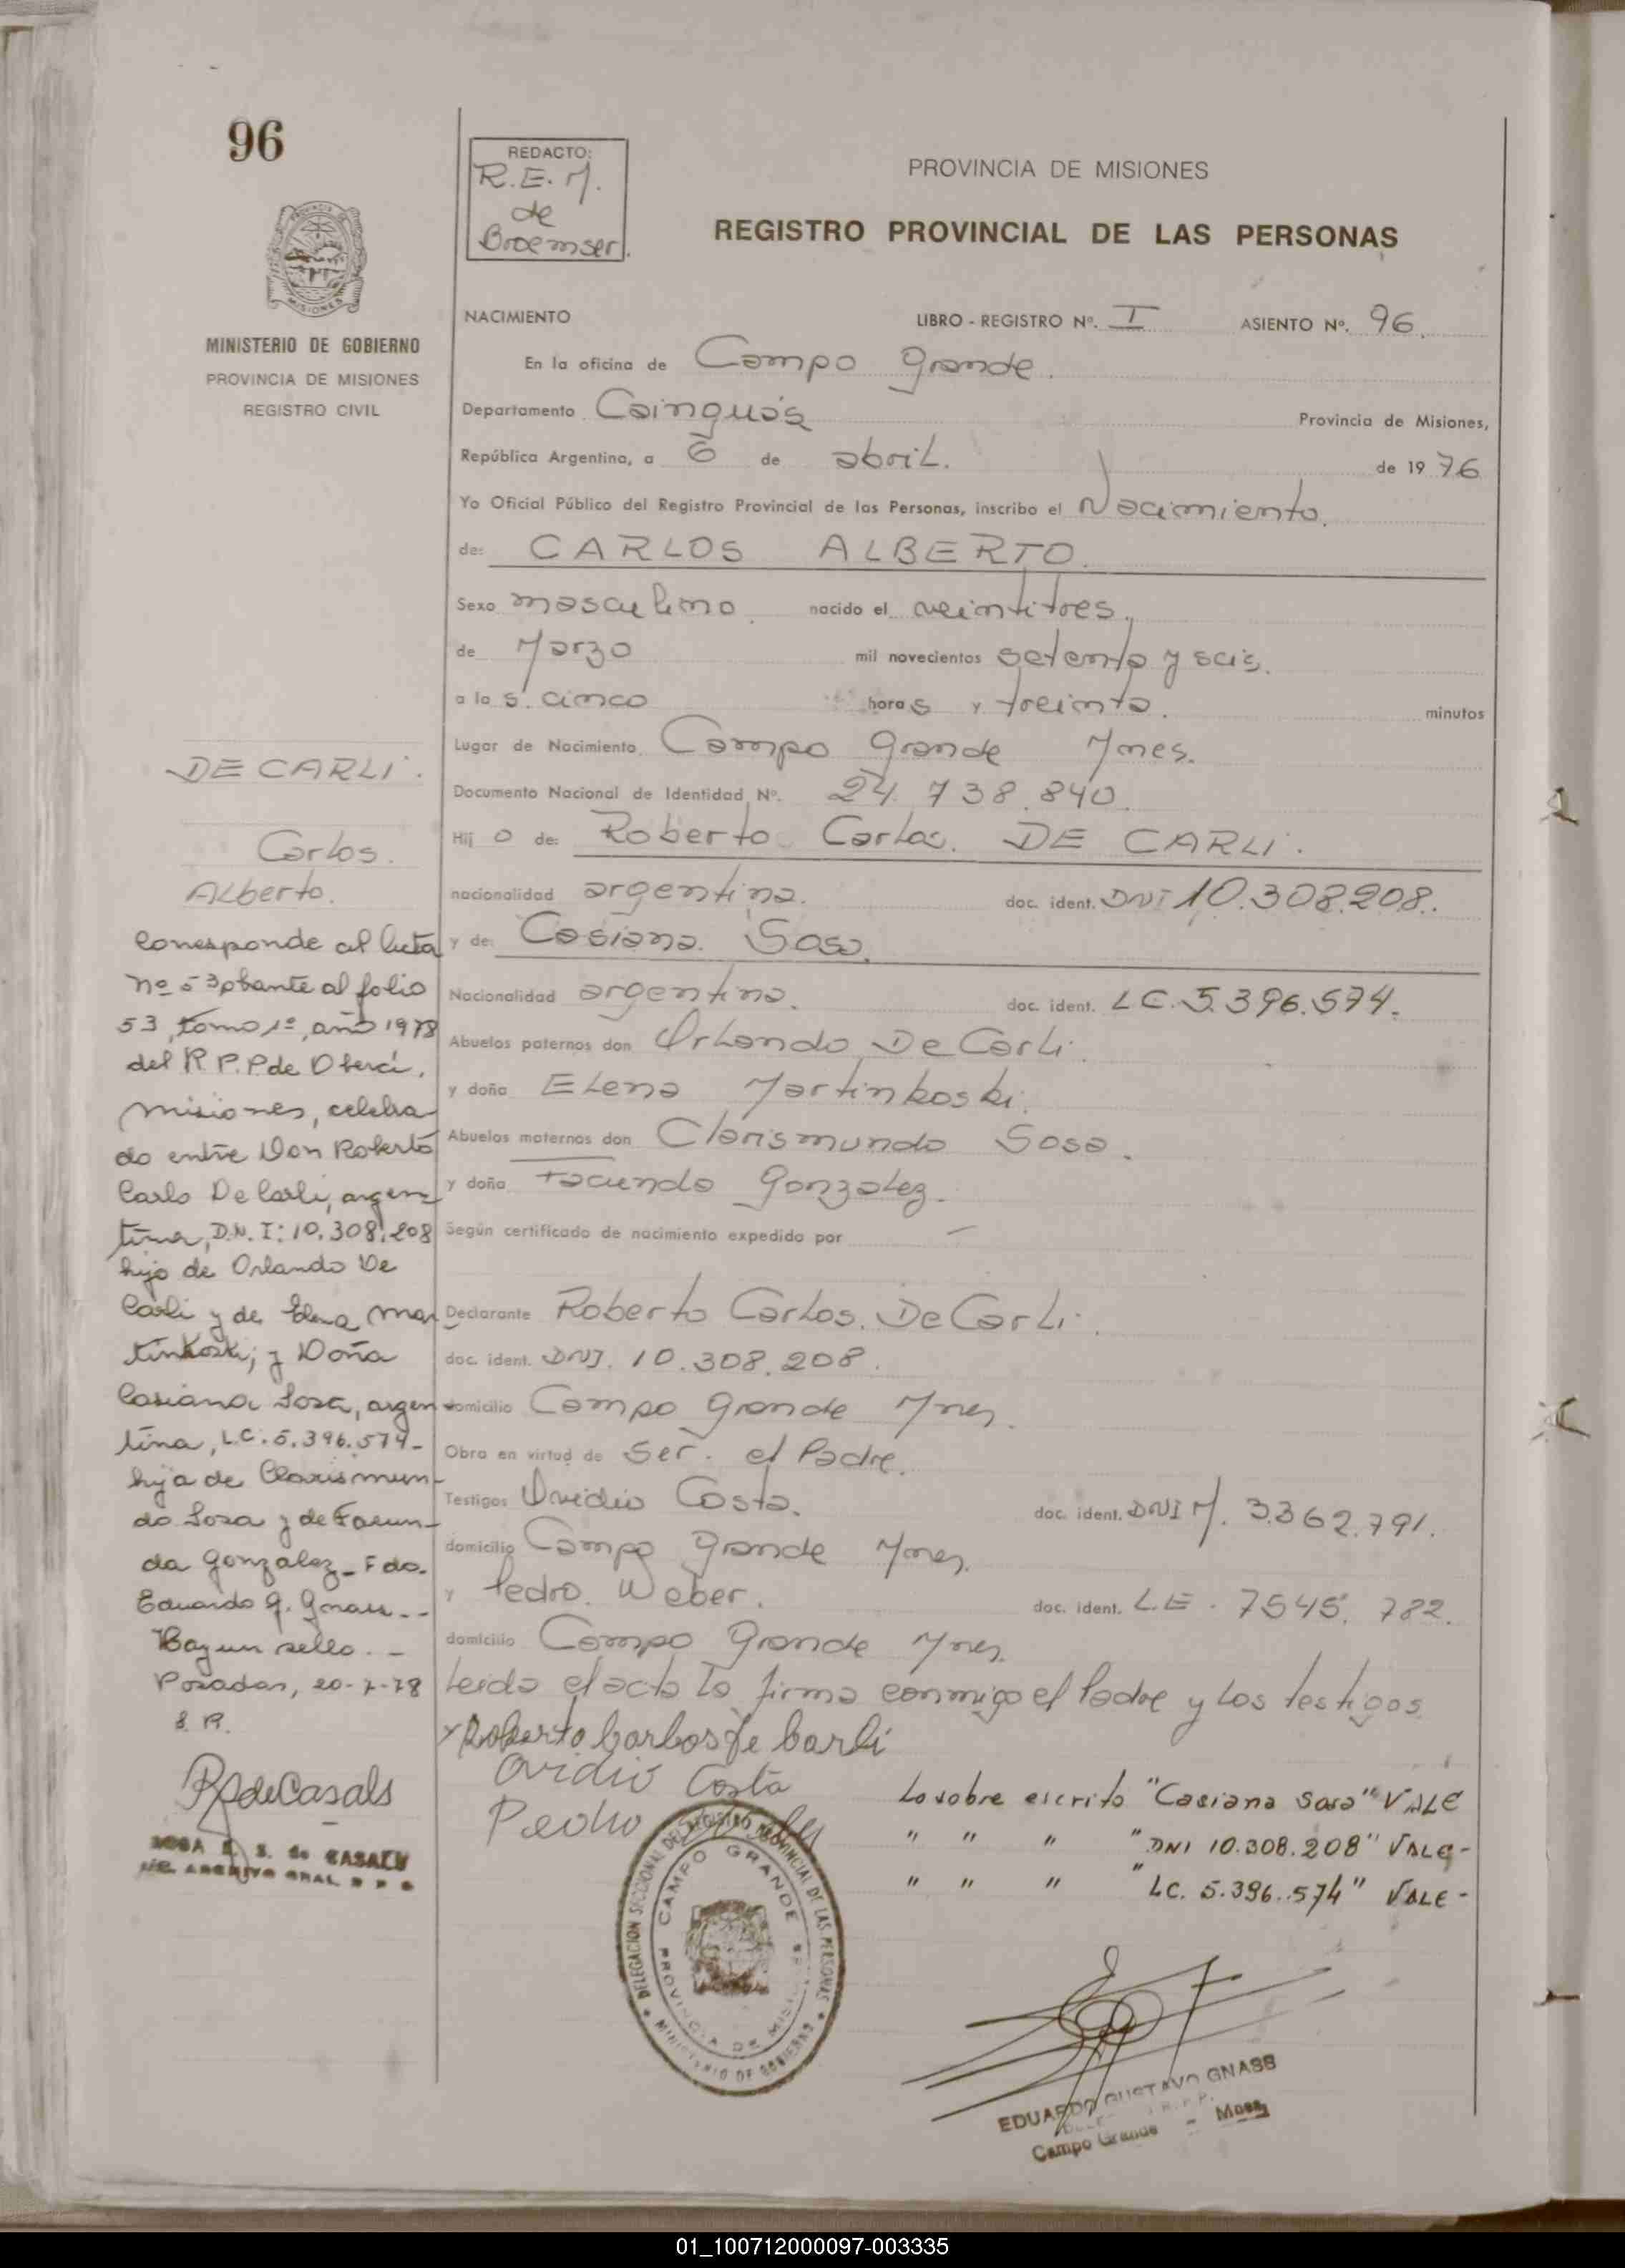 96
REDACTO:
R.E.M.
de
Broemser.
PROVINCIA DE MISIONES
REGISTRO PROVINCIAL DE LAS PERSONAS
MISIONES
MINISTERIO DE GOBIERNO
PROVINCIA DE MISIONES
REGISTRO CIVIL
NACIMIENTO LIBRO - REGISTRO Nº. I ASIENTO Nº. 96.
En la oficina de Campo Grande.
Departamento Cainguás Provincia de Misiones,
República Argentina, a 6 de abril. de 19 76
Yo Oficial Público del Registro Provincial de las Personas, inscribo el Nacimiento.
de: CARLOS ALBERTO.
Sexo masculino. nacido el veintitres.
de Marzo mil novecientos setenta y seis.
a la s. cinco hora s y treinta. minutos
Lugar de Nacimiento Campo Grande Mnes.
Documento Nacional de Identidad Nº. 24.738.840.
Hij o de: Roberto Carlos. DE CARLI.
nacionalidad argentina. doc. ident. DNI 10.308.208.
y de: Casiana Sosa.
Nacionalidad argentina. doc. ident. LC. 5.396.574.
Abuelos paternos don Orlando De Carli.
y doña Elena Martinkoski.
Abuelos maternos don Clarismundo Sosa.
y doña Facunda Gonzalez.
Según certificado de nacimiento expedido por —
Declarante Roberto Carlos. De Carli.
doc. ident. DNI. 10.308.208.
domicilio Campo Grande Mnes.
Obra en virtud de Ser. el Padre.
Testigos Ovidio Costa. doc. ident. DNI M. 3.362.791.
domicilio Campo Grande Mnes.
y Pedro. Weber. doc. ident. L.E. 7545.782.
domicilio Campo Grande Mnes.
Leida el acta la firma conmigo el Padre y los testigos
Roberto Carlos De Carli
Ovidio Costa
Pedro
Lo sobre escrito "Casiana Sosa" VALE
" " " "DNI 10.308.208" VALE-
" " " "LC. 5.396.574" VALE-
DE CARLI.
Carlos.
Alberto.
Corresponde al Acta
nº 53 obrante al folio
53, tomo 1º, año 1978
del R.P.P. de Oberá,
Misiones, celebra
do entre Don Roberto
Carlo De Carli, argen
tino, D.N.I: 10.308.208
hijo de Orlando De
Carli y de Elena Mar
tinkoski; y Doña
Casiana Sosa, argen
tina, L.C. 5.396.574-
hija de Clarismun-
do Sosa y de Facun-
da Gonzalez_Fdo.
Eduardo G. Gnass--
Hay un sello.-
Posadas, 20-7-78
S.R.
RpdeCasals
ROSA S. de CASALS
ARCHIVO GRAL R P P
DELEGACION SECCIONAL DEL REGISTRO PROVINCIAL DE LAS PERSONAS
MINISTERIO DE GOBIERNO
CAMPO GRANDE
PROVINCIA DE MISIONES
EDUARDO GUSTAVO GNASS
R.P.P.
Campo Grande - Mnes.
01_100712000097-003335